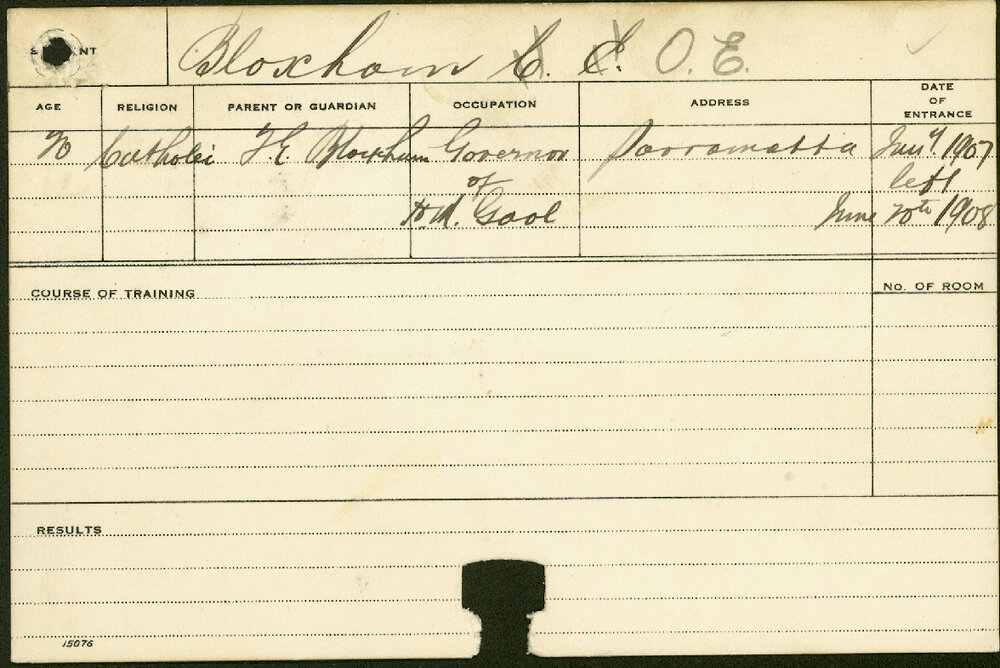 NT Bloxham C. C. O. E.
AGE RELIGION PARENT OR GUARDIAN OCCUPATION ADDRESS DATE OF ENTRANCE
20 Catholic Bloxham Governor Parramatta 1907
of left
H.M. Gaol June 20th 1908
COURSE OF TRAINING No. OF ROOM
RESULTS
15076